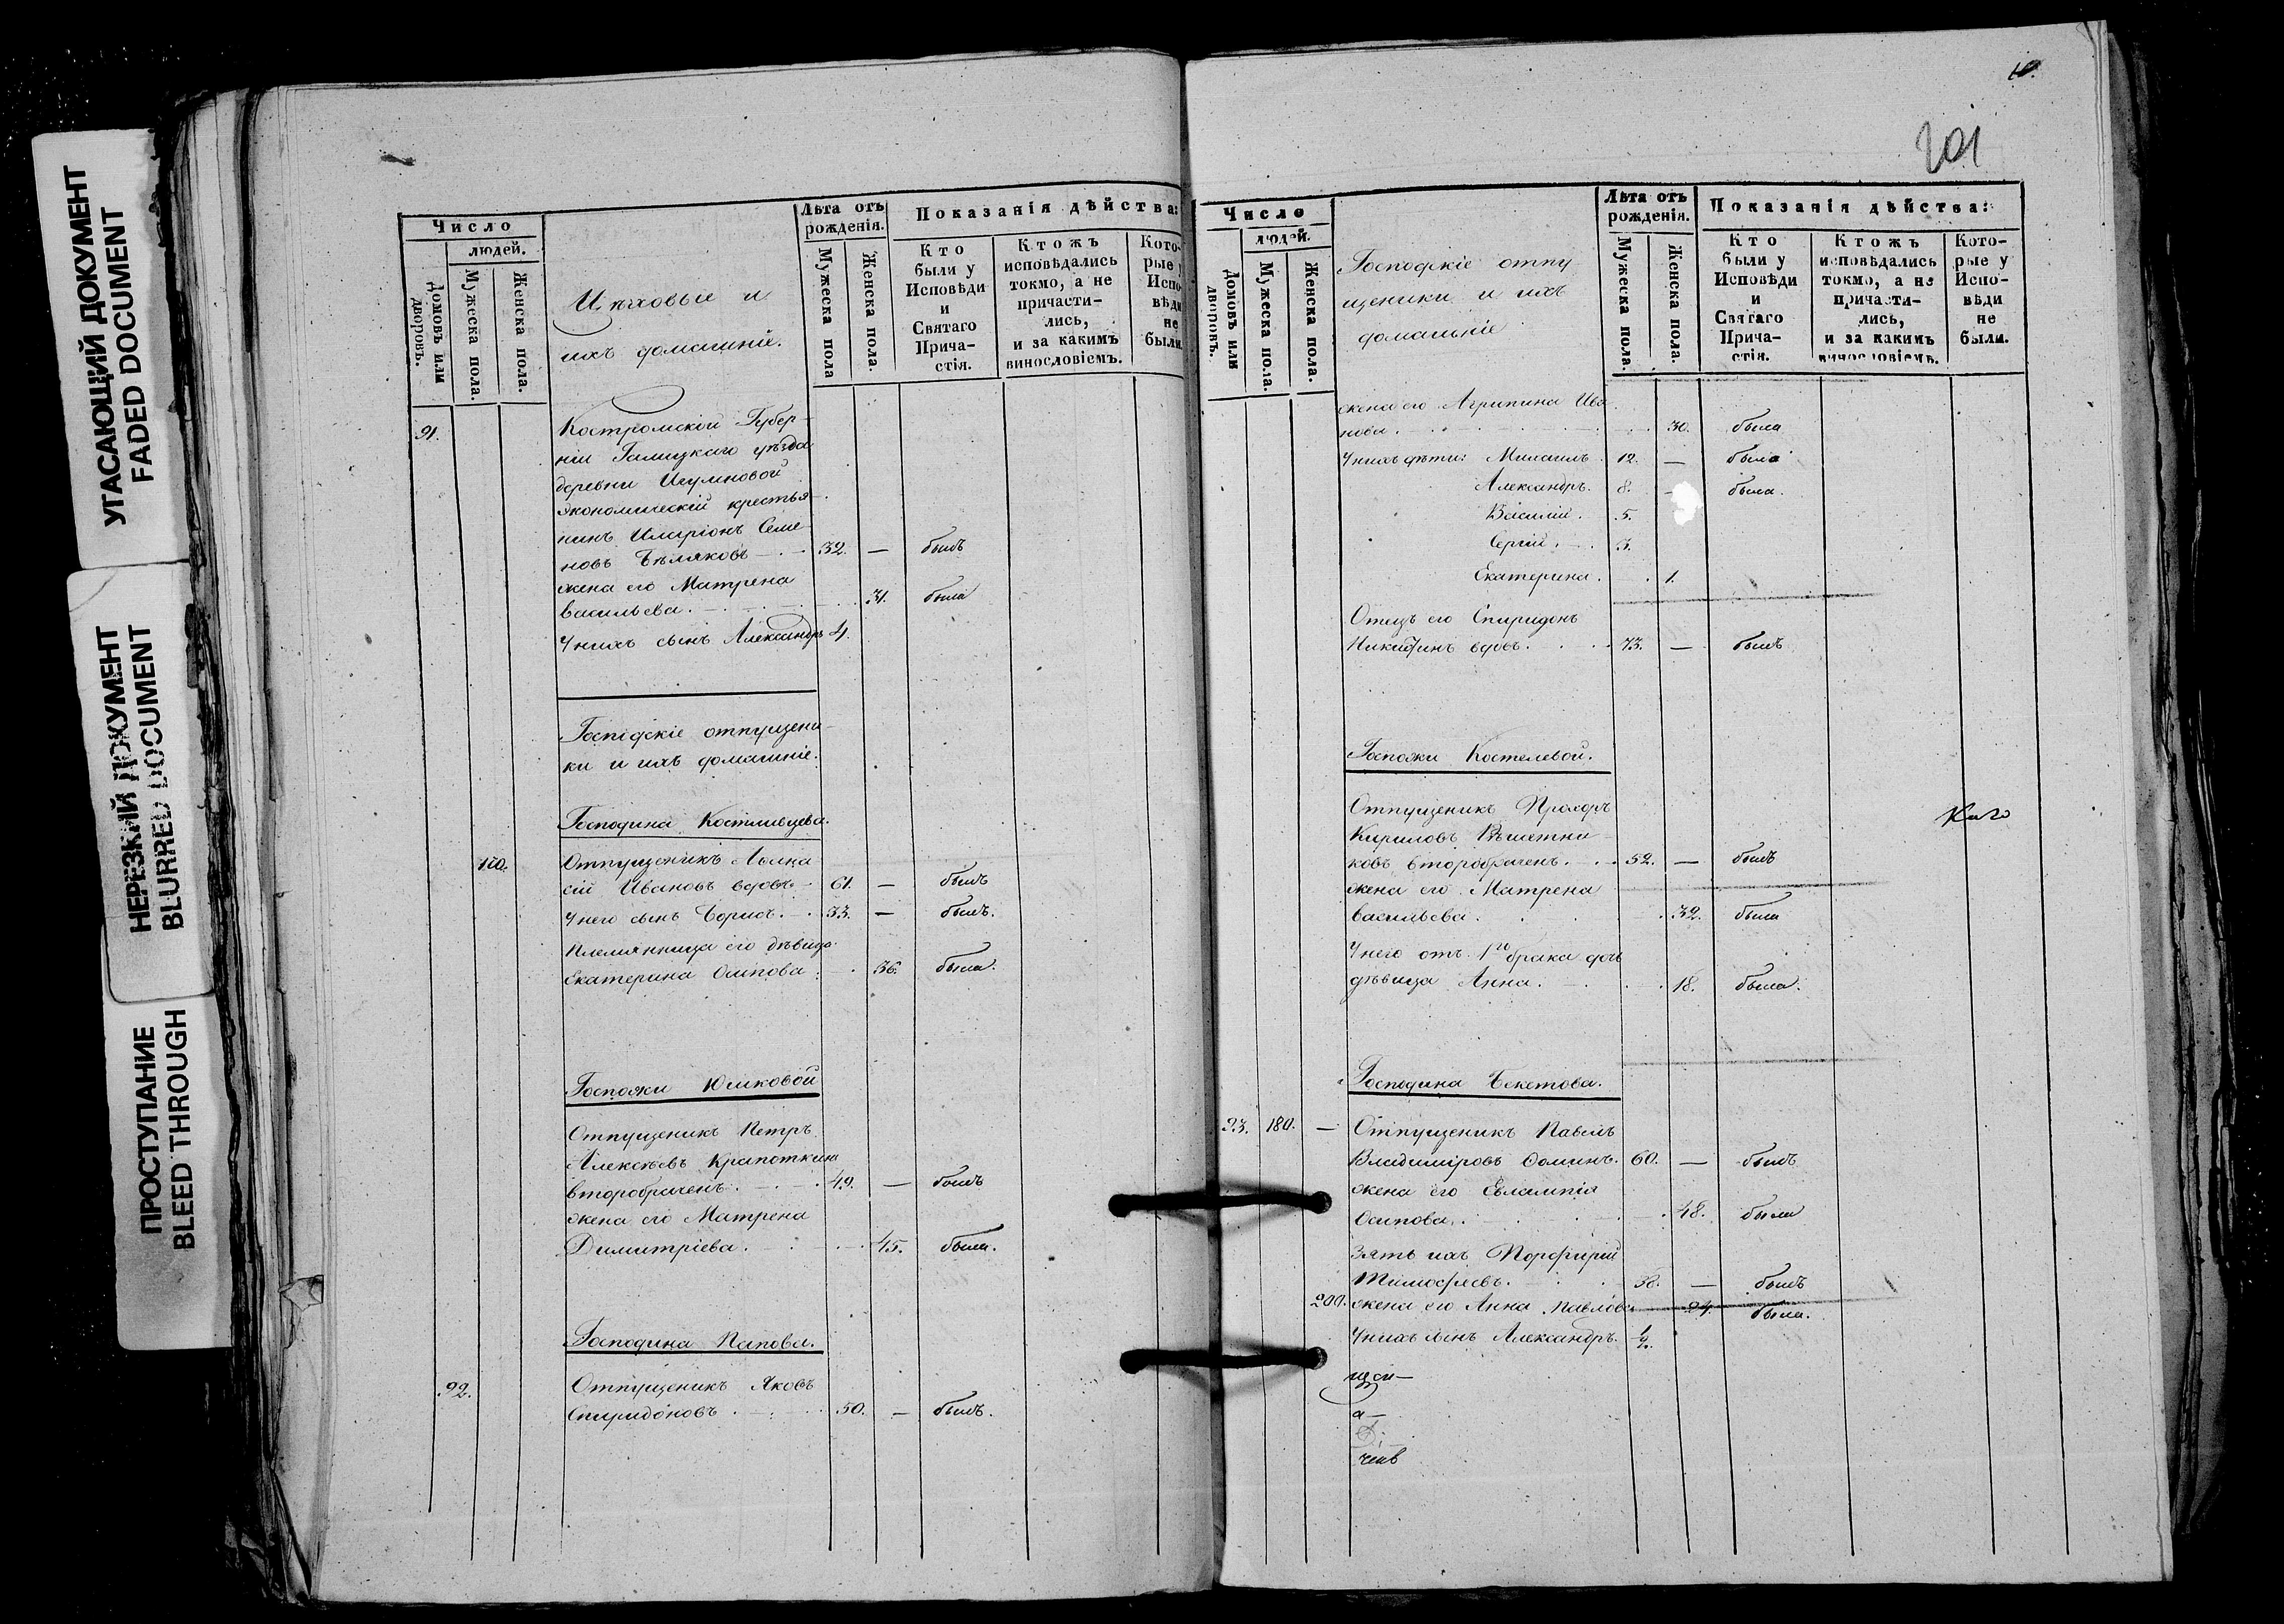 УГАСАЮЩИЙ ДОКУМЕНТ
FADED DOCUMENT
НЕРЕЗКИЙ ДОКУМЕНТ
BLURRED DOCUMENT
ПРОСТУПАНИЕ
BLEED THROUGH
Число
людей.
Домовъ или дворовъ.
Мужеска пола.
Женска пола.
Цѣховые и
ихъ домашніе.
Лѣта отъ рожденія.
Мужеска пола
Женска пола.
Показанія дѣйства:
Кто были у Исповѣди и Святаго Прича-стія.
Ктожъ исповѣдались токмо, а не причасти-лись, и за какимъ винословіемъ.
Кото-рые у Испо-вѣди не были.
91. Костромской Губер-
ніи Галицкаго уѣзда
деревни Игумновой
экономическій крестья-
нинъ Иларіонъ Семе
новъ Бѣляковъ 32. — былъ
жена его Матрена
Васильева. 31. была
У нихъ сынъ Александръ 4.
Господскіе отпущени-
ки и ихъ домашніе.
Господина Костливцева.
170. Отпущеникъ
Ивановъ вдовъ 61. — былъ
У него сынъ Борисъ. 33. — былъ.
Племянница его дѣвица
Екатерина Осипова 36. была.
Госпожи Юшковой
Отпущеникъ Петръ
Алексѣевъ Крапоткинъ
второбраченъ. 49. — былъ
жена его Матрена
Димитріева. 45. была.
Господина Папова.
92. Отпущеникъ Яковъ
Спиридоновъ 50. — былъ.
10.
201
Число
людей.
Домовъ или дворовъ.
Мужеска пола.
Женска пола.
Господскіе отпу
щеники и ихъ
домашніе
Лѣта отъ рожденія.
Мужеска пола.
Женска пола.
Показанія дѣйства:
Кто были у Исповѣди и Святаго Прича-стія.
Ктожъ исповѣдались токмо, а не причасти-лись, и за какимъ винословіемъ.
Кото-рые у Испо-вѣди не были.
жена его Агрипина Ива
нова. 30. была
У нихъ дѣти: Михаилъ 12. — была
Александръ. 8. — была.
Василій. 5.
Сергій. 3.
Екатерина. 1.
Отецъ его Спиридонъ
Никитинъ вдовъ. 73. — былъ
Госпожи Костелевой.
Отпущеникъ Прохоръ
Кириловъ
ковъ второбраченъ. 52. — былъ
жена его Матрена
Васильева. 32. была
У него отъ 1го брака дочь
дѣвица Анна. 18. была.
Господина Бекетова.
93. 180. — Отпущеникъ Павелъ
Владиміровъ Ѳоминъ. 60. — былъ
жена его Евлампія
Осипова. 48. была
Зять ихъ Порфирій
Тимофѣевъ. 38. — былъ
200. жена его Анна Павлова 24. была.
У нихъ сынъ Александръ. ½.
а—